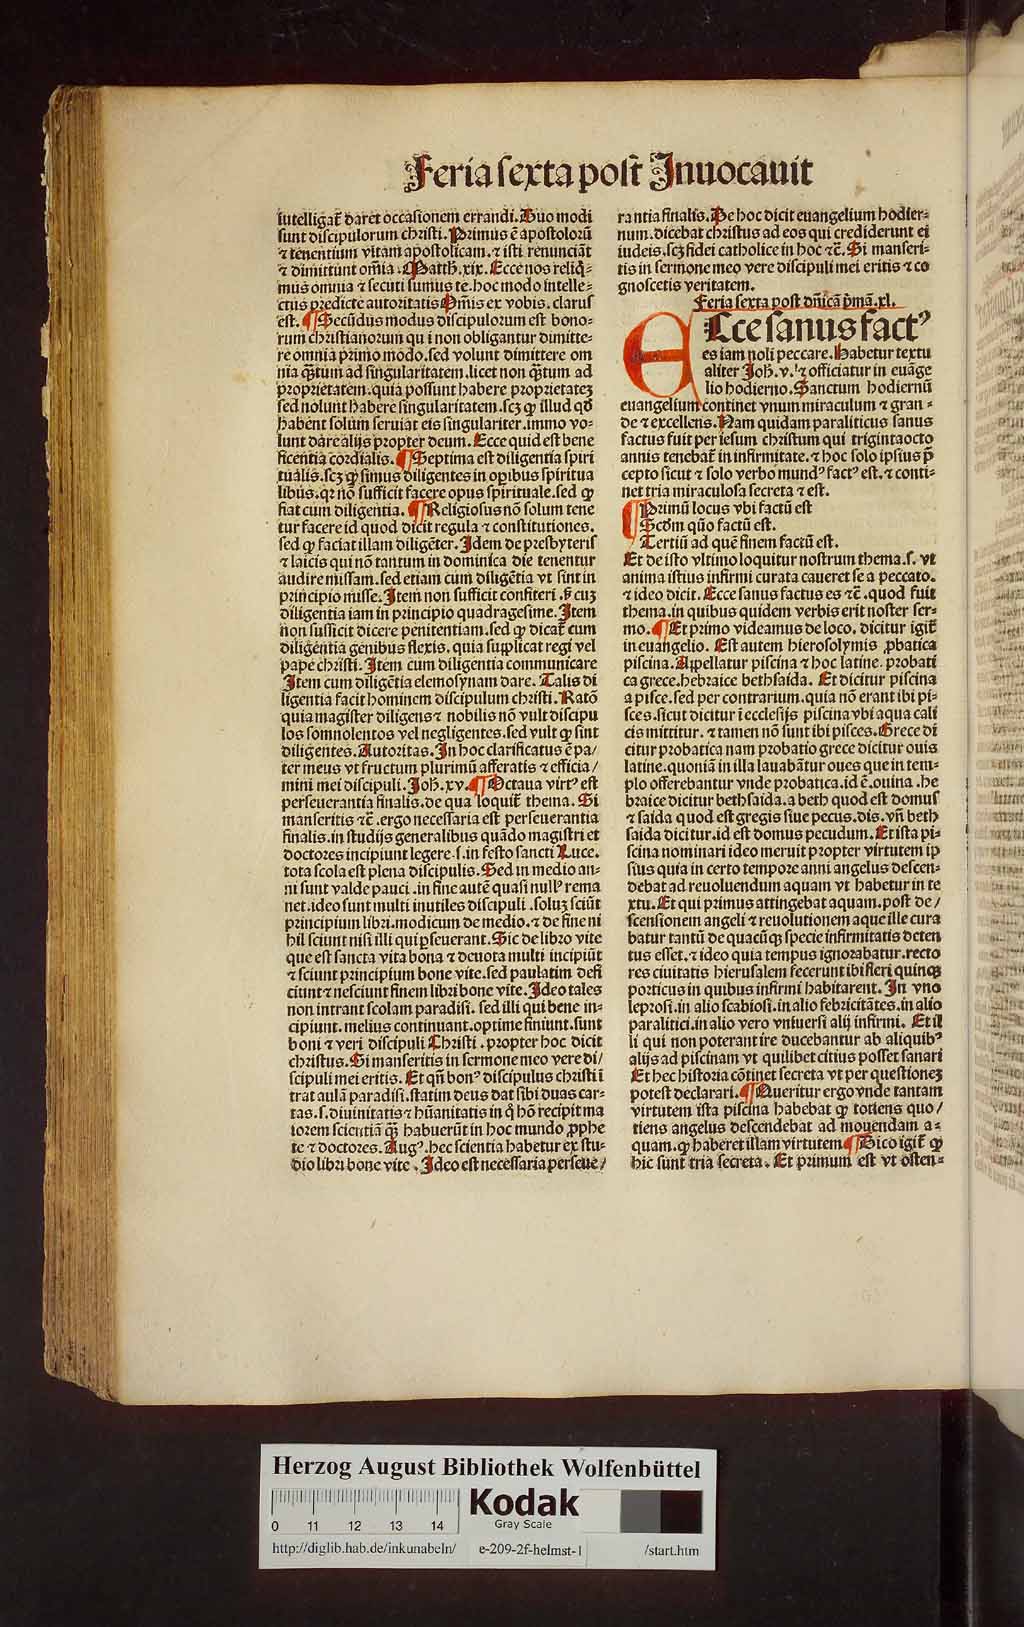 Feria sexta post̄ Inuocauit
intelligat̄ daret occasionem errandi. Duo modi
sunt discipulorum christi. Primus ē apostolorū
⁊ tenentium vitam apostolicam. ⁊ isti renunciāt
⁊ dimittunt om̄ia. Matth̄. xix. Ecce nos reliq̄-
mus omnia ⁊ secuti sumus te. hoc modo intelle-
ctus predicte autoritatis Om̄is ex vobis. clarus
est. ¶ Secūdus modus discipulorum est bono-
rum christianorum qui non obligantur dimitte-
re omnia primo modo. sed volunt dimittere om
nia q̄tum ad singularitatem. licet non q̄tum ad
proprietatem. quia possunt habere proprietatez
sed nolunt habere singularitatem. scz ꝙ illud qđ
habent solum seruiat eis singulariter. immo vo-
lunt dare alijs propter deum. Ecce quid est bene
ficentia cordialis. ¶ Septima est diligentia spiri
tualis. scz ꝙ simus diligentes in opibus spiritua
libus. qꝛ nō sufficit facere opus spirituale. sed ꝙ
fiat cum diligentia. ¶ Religiosus nō solum tene
tur facere id quod dicit regula ⁊ constitutiones.
sed ꝙ faciat illam diligēter. Idem de presbyteris
⁊ laicis qui nō tantum in dominica die tenentur
audire missam. sed etiam cum diligētia vt sint in
principio misse. Item non sufficit confiteri. s̄ cuz
diligentia iam in principio quadragesime. Item
non sufficit dicere penitentiam. sed ꝙ dicat̄ cum
diligentia genibus flexis. quia supplicat regi vel
pape christi. Item cum diligentia communicare
Item cum diligētia elemosynam dare. Talis di
ligentia facit hominem discipulum christi. Ratō
quia magister diligens ⁊ nobilis nō vult discipu
los somnolentos vel negligentes. sed vult ꝙ sint
diligentes. Autoritas. In hoc clarificatus ē pa/
ter meus vt fructum plurimū afferatis ⁊ efficia/
mini mei discipuli. Joh̄. xv. ¶ Octaua virtꝰ est
perseuerantia finalis. de qua loquit̄ thema. Si
manseritis ⁊c̄. ergo necessaria est perseuerantia
finalis. in studijs generalibus quādo magistri et
doctores incipiunt legere. s. in festo sancti Luce.
tota scola est plena discipulis. Sed in medio an-
ni sunt valde pauci. in fine autē quasi nullꝰ rema
net. ideo sunt multi inutiles discipuli. soluz sciūt
principium libri. modicum de medio. ⁊ de fine ni
hil sciunt nisi illi qui ꝑseuerant. Sic de libro vite
que est sancta vita bona ⁊ deuota multi incipiūt
⁊ sciunt principium bone vite. sed paulatim defi
ciunt ⁊ nesciunt finem libri bone vite. Ideo tales
non intrant scolam paradisi. sed illi qui bene in-
cipiunt. melius continuant. optime finiunt. sunt
boni ⁊ veri discipuli Christi. propter hoc dicit
christus. Si manseritis in sermone meo vere di/
scipuli mei eritis. Et qn̄ bonꝰ discipulus christi ī
trat aulā paradisi. statim deus dat sibi duas car-
tas. s. diuinitatis ⁊ hūanitatis in q̇ hō recipit ma
iorem scientiā q̄ꝫ habuerūt in hoc mundo ꝓphe
te ⁊ doctores. Augꝰ. hec scientia habetur ex stu-
dio libri bone vite. Ideo est necessaria perseue/
rantia finalis. De hoc dicit euangelium hodier-
num. dicebat christus ad eos qui crediderunt ei
iudeis. scz fidei catholice in hoc ⁊c̄. Si manseri-
tis in sermone meo vere discipuli mei eritis ⁊ co
gnoscetis veritatem.
Feria sexta post dn̄icā p̄mā. xl.
Ecce sanus factꝰ
es iam noli peccare. Habetur textu
aliter Joh̄. v. ⁊ officiatur in euāge
lio hodierno. Sanctum hodiernū
euangelium continet vnum miraculum ⁊ gran-
de ⁊ excellens. Nam quidam paraliticus sanus
factus fuit per iesum christum qui trigintaocto
annis tenebat̄ in infirmitate. ⁊ hoc solo ipsius p̄
cepto sicut ⁊ solo verbo mundꝰ factꝰ est. ⁊ conti-
net tria miraculosa secreta ⁊ est.
¶ Primū locus vbi factū est
Scdm quo factū est.
Tertiū ad quē finem factū est.
Et de isto vltimo loquitur nostrum thema. s. vt
anima istius infirmi curata caueret se a peccato.
⁊ ideo dicit. Ecce sanus factus es ⁊c̄. quod fuit
thema. in quibus quidem verbis erit noster ser-
mo. ¶ Et primo videamus de loco. dicitur igit̄
in euangelio. Est autem hierosolymis ꝓbatica
piscina. Appellatur piscina ⁊ hoc latine. probati
ca grece. hebraice bethsaida. Et dicitur piscina
a pisce. sed per contrarium. quia nō erant ibi pi-
sces. sicut dicitur ī ecclesijs piscina vbi aqua cali
cis mittitur. ⁊ tamen nō sunt ibi pisces. Grece di
citur probatica nam probatio grece dicitur ouis
latine. quoniā in illa lauabātur oues que in tem-
plo offerebantur vnde probatica. id ē. ouina. he
braice dicitur bethsaida. a beth quod est domus
⁊ saida quod est gregis siue pecus. dis. vn̄ beth
saida dicitur. id est domus pecudum. Et ista pi-
scina nominari ideo meruit propter virtutem ip
sius quia in certo tempore anni angelus descen-
debat ad reuoluendum aquam vt habetur in te
xtu. Et qui primus attingebat aquam. post de/
scensionem angeli ⁊ reuolutionem aque ille cura
batur tantū de quacūqꝫ specie infirmitatis deten
tus esset. ⁊ ideo quia tempus ignorabatur. recto
res ciuitatis hierusalem fecerunt ibi fieri quinqꝫ
porticus in quibus infirmi habitarent. In vno
leprosi. in alio scabiosi. in alio febricitātes. in alio
paralitici. in alio vero vniuersi alij infirmi. Et il
li qui non poterant ire ducebantur ab aliquibꝰ
alijs ad piscinam vt quilibet citius posset sanari
Et hec historia cōtinet secreta vt per questionez
potest declarari. ¶ Queritur ergo vnde tantam
virtutem ista piscina habebat ꝙ totiens quo/
tiens angelus descendebat ad mouendam a-
quam. ꝙ haberet illam virtutem ¶ Dico igit̄ ꝙ
hic sunt tria secreta. Et primum est vt osten-
Herzog August Bibliothek Wolfenbüttel
Kodak
Gray Scale
0 11 12 13 14
http://diglib.hab.de/inkunabeln/ e-209-2f-helmst-1 /start.htm